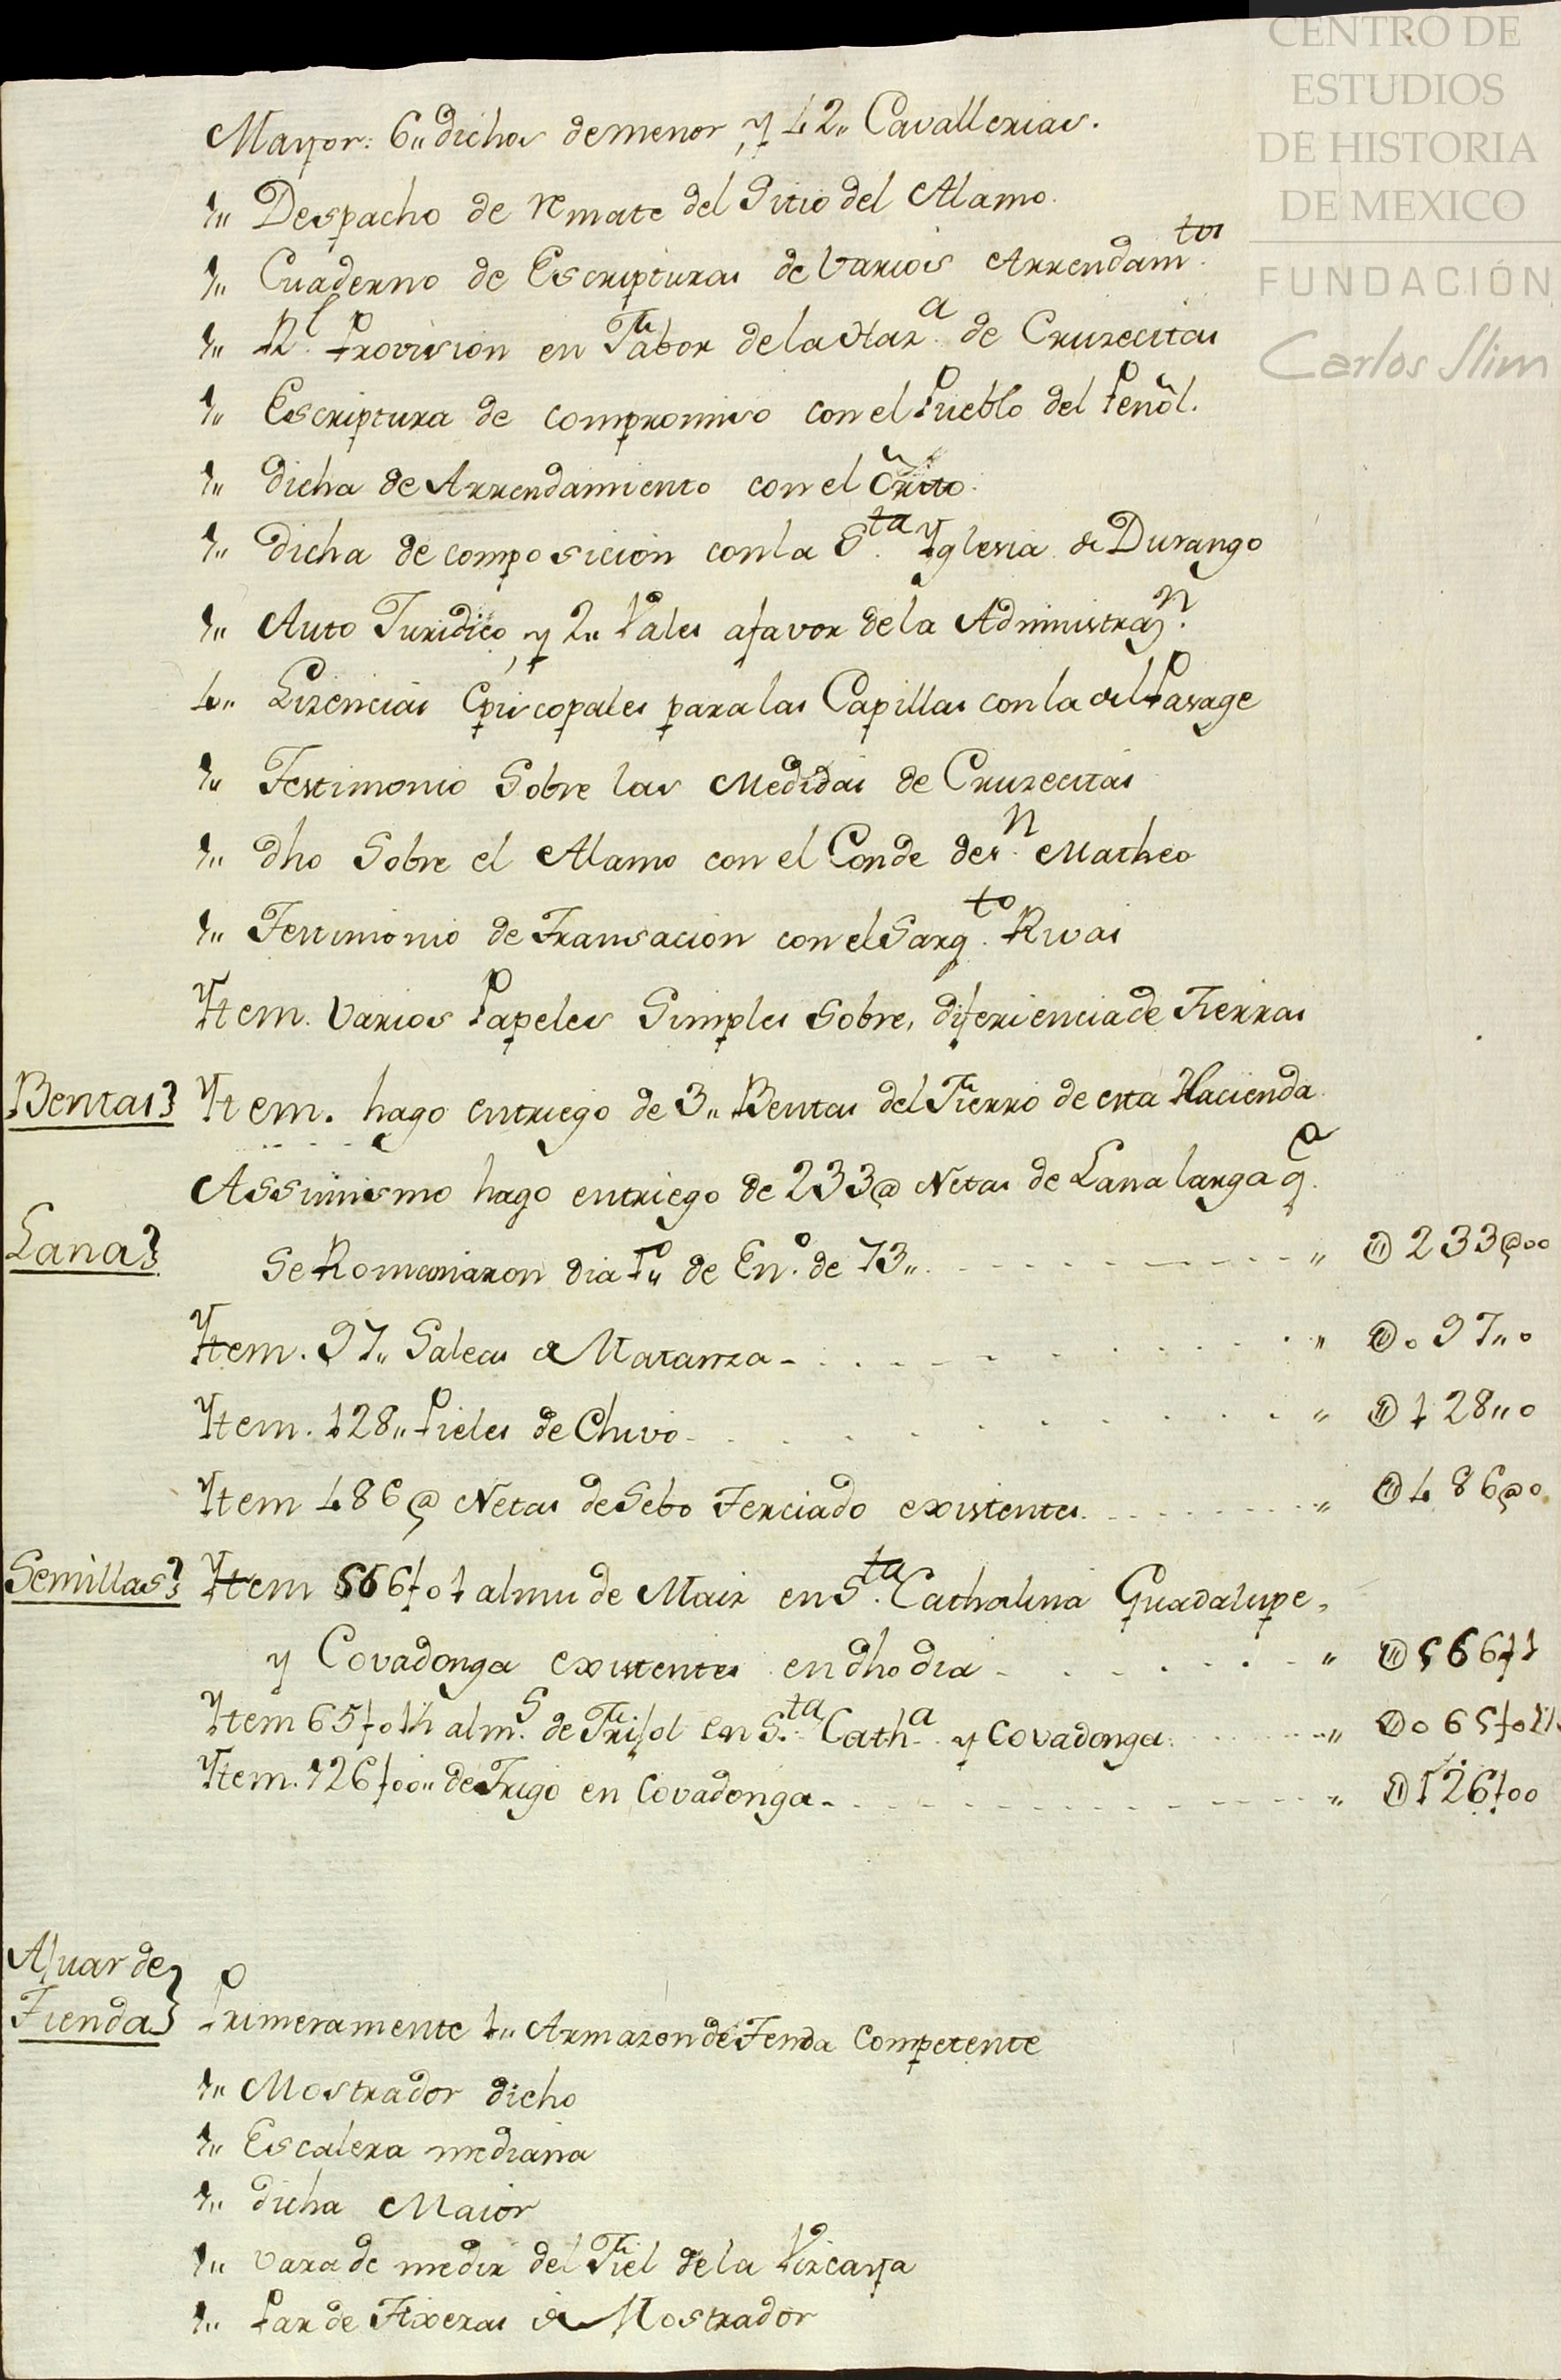 CENTRO DE
ESTUDIOS
DE HISTORIA
DE MEXICO
FUNDACIÓN
Carlos Slim
Mayor: 6,, dichos de menor, y 42,, Cavallerias.
1,, Despacho de remate del Sitio del Alamo.
1,, Cuaderno de Escripturas de Varios Arrendam.tos
1,, Rl. Provision en Fabor de la Haz.a de Cruzecitas
1,, Escriptura de compromiso con el Pueblo del Peñol.
1,, dicha de Arrendamiento con el
1,, dicha de composicion con la S.ta Yglesia de Durango
1,, Auto Juridico, y 2,, Vales a favor de la Administraz.n
4,, Lizencias Episcopales para las Capillas con la del Pasage
1,, Testimonio Sobre las Medidas de Cruzecitas
1,, dho Sobre el Alamo con el Conde de S.n Matheo
1,, Testimonio de Transacion con el Sarg.to Rivas
Ytem. Varios Papeles Simples Sobre, diferiencia de Tierras
Bentas} Ytem. hago entriego de 3,, Bentas del Fierro de esta Hacienda
Assimismo hago entriego de 233@ Netas de Lana larga q.e
Lana} Se Romaniaron dia 1o,, de En.o de 73,, 233@00
Ytem. 97,, Saleas de Matanza 097,,0
Ytem. 128,, Pieles de Chivo 128,,0
Ytem 486@ Netas de Sebo Terciado existentes 486@0
Semillas} Ytem 566f01 almu de Maiz en S.ta Catharina Guadalupe,
y Covadonga existentes en dho dia 566f1
Ytem 65f0 alm.s de Frisol en S.ta Cath.a y Covadonga 065f0
Ytem. 126f00,, de Trigo en Covadonga 126f00
Ajuar de
Tienda} Primeramente 1,, Armazon de Tenda Competente
1,, Mostrador dicho
1,, Escalera mediana
1,, dicha Maior
1,, vara de medir del Fiel de la Vizcaya
1,, Par de Tixeras de Mostrador